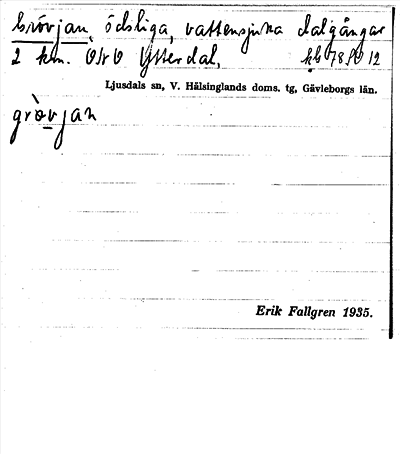 Grövjan, ödsliga, vattensjuka dalgångar
2 km. ONO Ytterdal, kb 78 SV 12
Ljusdals sn, V. Hälsinglands doms. tg, Gävleborgs län.
gròvjan
Erik Fallgren 1935.